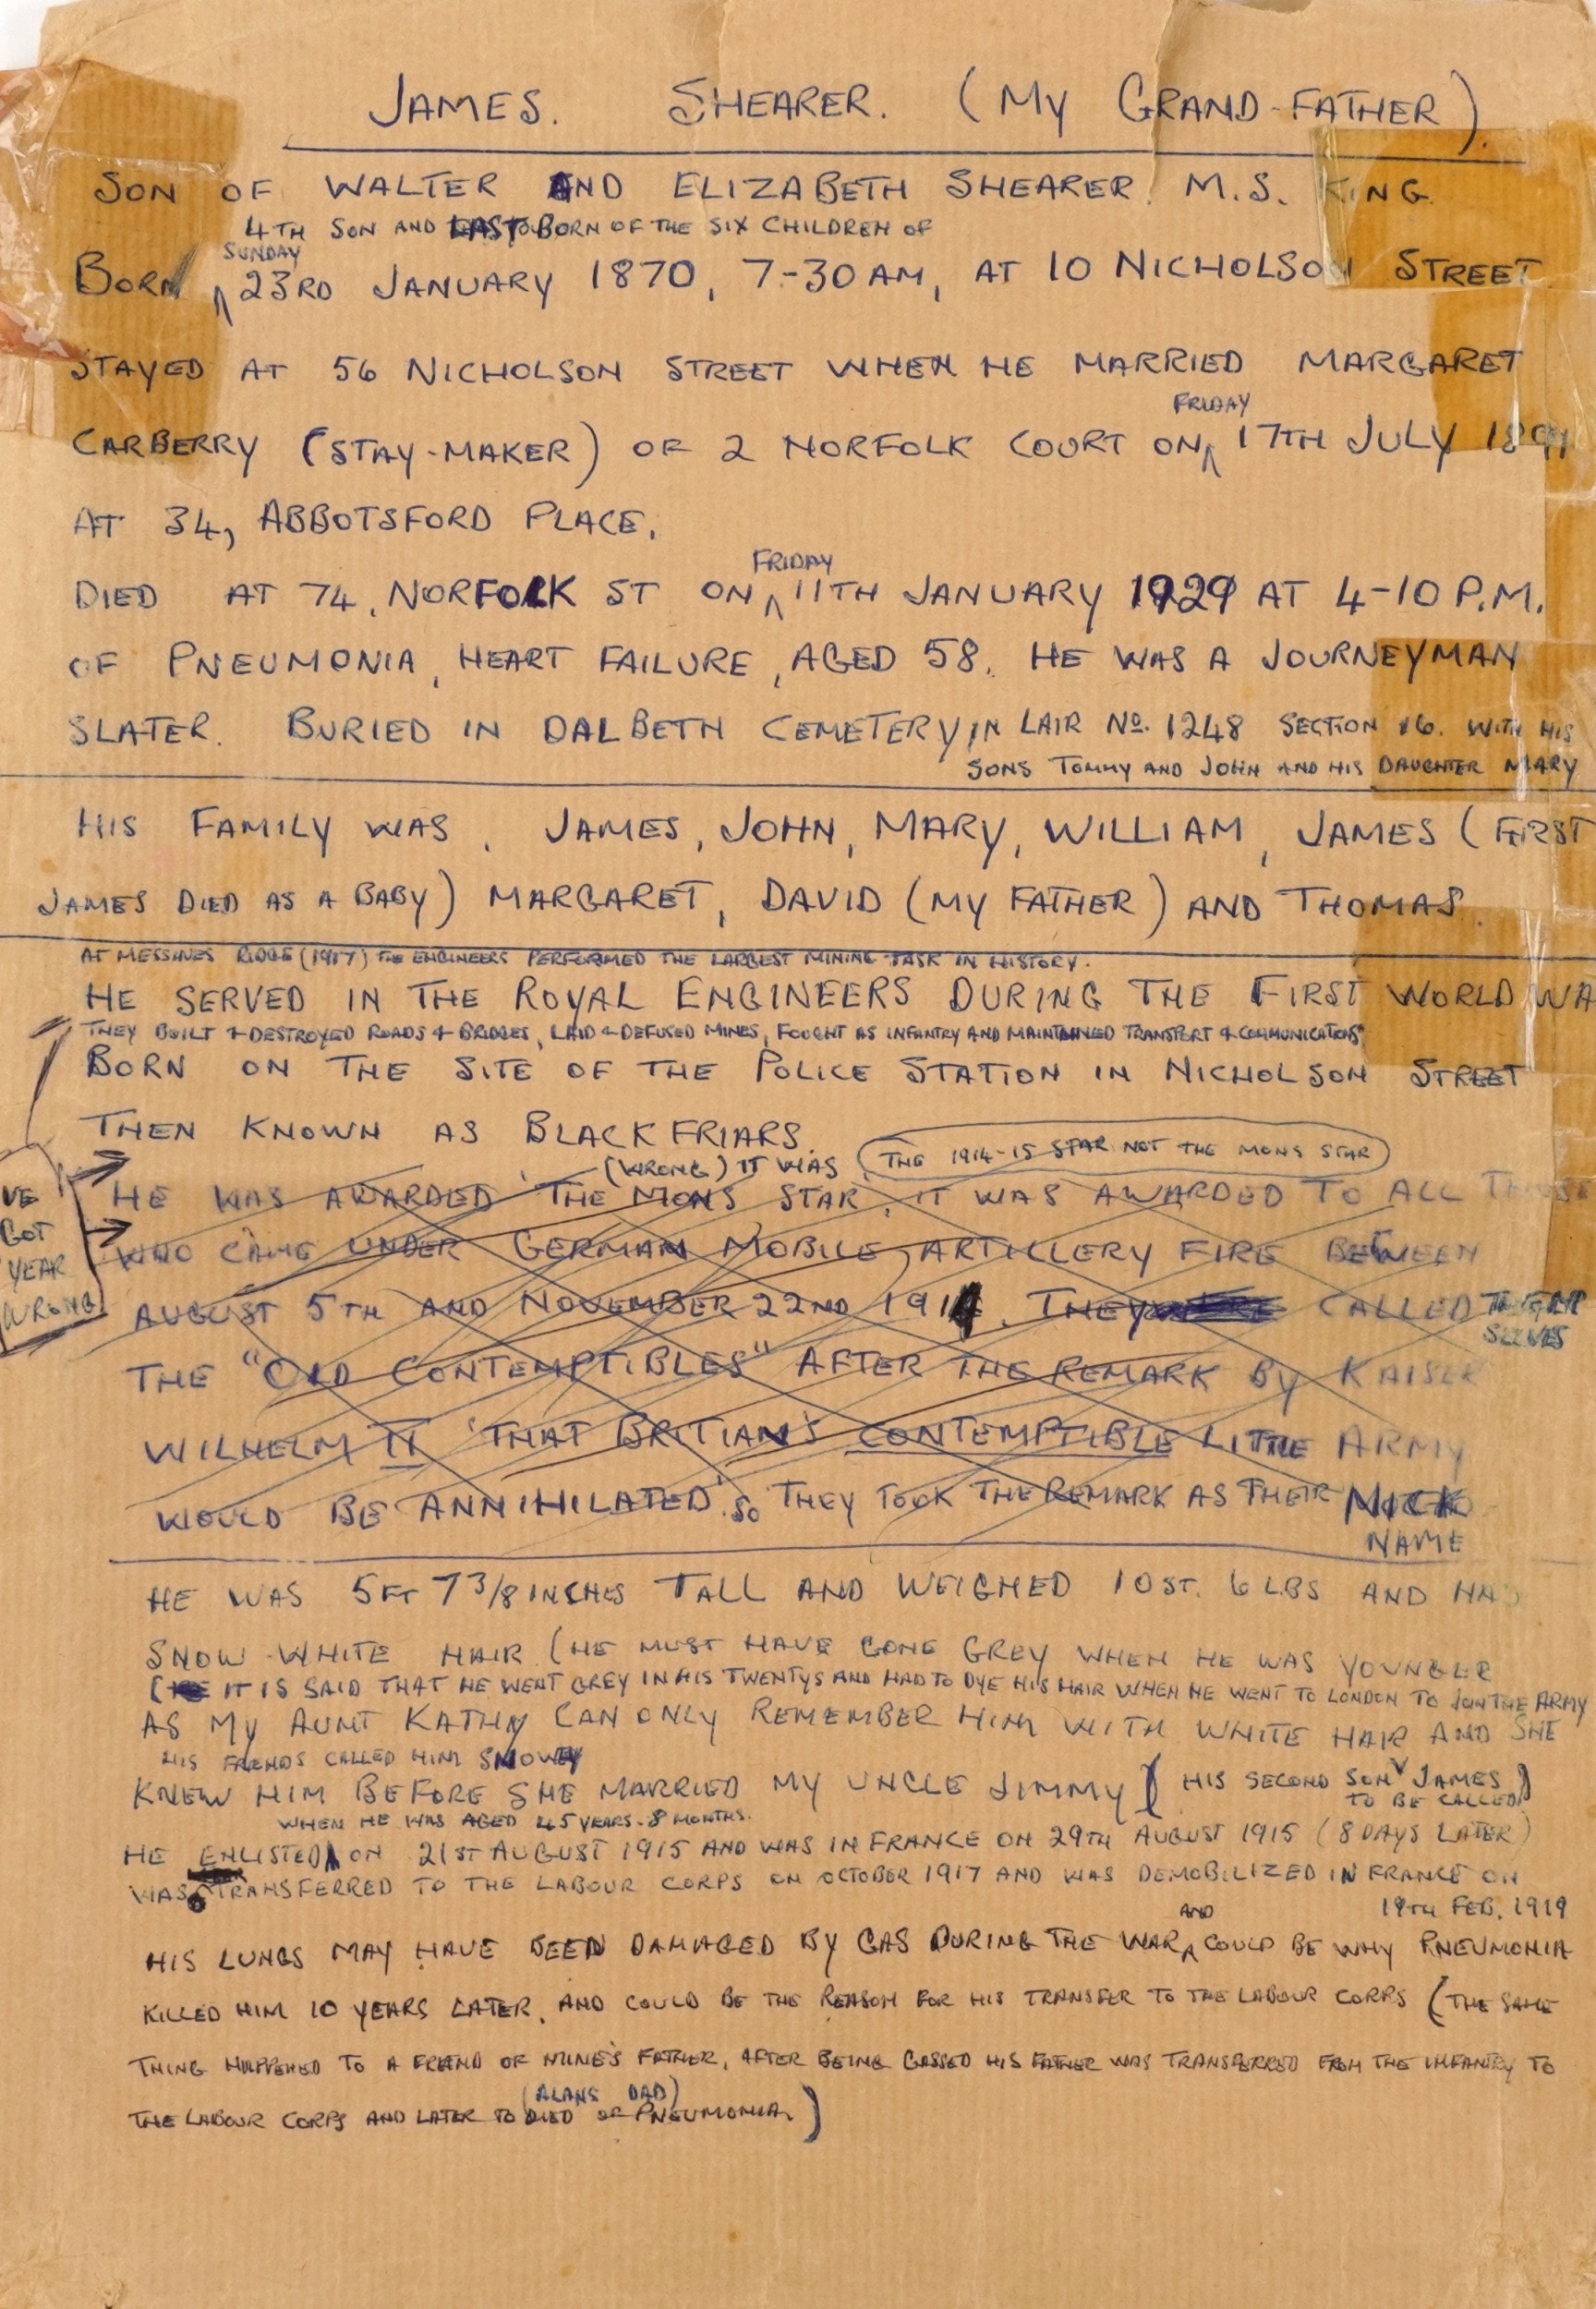 JAMES. SHEARER. (MY GRAND-FATHER).
SON OF WALTER AND ELIZABETH SHEARER. M.S. KING.
4TH SON AND LAST BORN OF THE SIX CHILDREN OF
SUNDAY
BORN 23RD JANUARY 1870, 7-30 AM, AT 10 NICHOLSON STREET
STAYED AT 56 NICHOLSON STREET WHEN HE MARRIED MARGARET
FRIDAY
CARBERRY (STAY-MAKER) OF 2 NORFOLK COURT ON 17TH JULY 1891
AT 34, ABBOTSFORD PLACE.
FRIDAY
DIED AT 74, NORFOLK ST ON 11TH JANUARY 1929 AT 4-10 P.M.
OF PNEUMONIA, HEART FAILURE, AGED 58. HE WAS A JOURNEYMAN
SLATER. BURIED IN DALBETH CEMETERY IN LAIR NO. 1248 SECTION 16. WITH HIS
SONS TOMMY AND JOHN AND HIS DAUGHTER MARY
HIS FAMILY WAS, JAMES, JOHN, MARY, WILLIAM, JAMES (FIRST
JAMES DIED AS A BABY) MARGARET, DAVID (MY FATHER) AND THOMAS.
AT MESSINES RIDGE (1917) THE ENGINEERS PERFORMED THE LARGEST MINING TASK IN HISTORY.
HE SERVED IN THE ROYAL ENGINEERS DURING THE FIRST WORLD WA
THEY BUILT & DESTROYED ROADS & BRIDGES, LAID & DEFUSED MINES, FOUGHT AS INFANTRY AND MAINTAINED TRANSPORT & COMMUNICATIONS
BORN ON THE SITE OF THE POLICE STATION IN NICHOLSON STREET
THEN KNOWN AS BLACKFRIARS.
(WRONG) IT WAS (THE 1914-15 STAR NOT THE MONS STAR)
HE WAS AWARDED THE MONS STAR, IT WAS AWARDED TO ALL THOSE
WHO CAME UNDER GERMAN MOBILE ARTILLERY FIRE BETWEEN
VE GOT YEAR WRONG
AUGUST 5TH AND NOVEMBER 22ND 1914. THEY CALLED THEM
SELVES
THE "OLD CONTEMPTIBLES" AFTER THE REMARK BY KAISER
WILHELM II 'THAT BRITIAN'S CONTEMPTIBLE LITTLE ARMY
WOULD BE ANNIHILATED'. SO THEY TOOK THE REMARK AS THEIR NICK
NAME
HE WAS 5FT 7 3/8 INCHES TALL AND WEIGHED 10 ST. 6 LBS AND HAD
SNOW-WHITE HAIR (HE MUST HAVE GONE GREY WHEN HE WAS YOUNGER
(IT IS SAID THAT HE WENT GREY IN HIS TWENTYS AND HAD TO DYE HIS HAIR WHEN HE WENT TO LONDON TO JOIN THE ARMY
AS MY AUNT KATHY CAN ONLY REMEMBER HIM WITH WHITE HAIR AND SHE
HIS FRIENDS CALLED HIM SNOWY
KNEW HIM BEFORE SHE MARRIED MY UNCLE JIMMY (HIS SECOND SON JAMES)
TO BE CALLED
WHEN HE WAS AGED 45 YEARS. 8 MONTHS.
HE ENLISTED ON 21ST AUGUST 1915 AND WAS IN FRANCE ON 29TH AUGUST 1915 (8 DAYS LATER)
WAS TRANSFERRED TO THE LABOUR CORPS ON OCTOBER 1917 AND WAS DEMOBILIZED IN FRANCE ON
19TH FEB. 1919
AND
HIS LUNGS MAY HAVE BEEN DAMAGED BY GAS DURING THE WAR COULD BE WHY PNEUMONIA
KILLED HIM 10 YEARS LATER, AND COULD BE THE REASON FOR HIS TRANSFER TO THE LABOUR CORPS (THE SAME
THING HAPPENED TO A FRIEND OF MINE'S FATHER, AFTER BEING GASSED HIS FATHER WAS TRANSFERRED FROM THE INFANTRY TO
(ALANS DAD)
THE LABOUR CORPS AND LATER TO DIED OF PNEUMONIA)